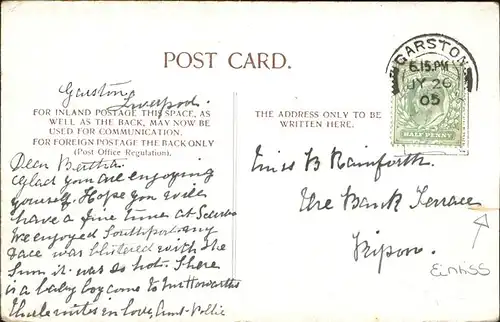 POST CARD.
Garston
Liverpool.
FOR INLAND POSTAGE THIS SPACE, AS
WELL AS THE BACK, MAY NOW BE
USED FOR COMMUNICATION.
FOR FOREIGN POSTAGE THE BACK ONLY
(Post Office Regulation).
Dear Bertha
Glad you are enjoying
yourself. Hope you will
have a fine time at Scarbro
We enjoyed Southport my
face was blistered with the
Sun it was so hot. There
is a baby boy come to Mrs Howarths
in love, Aunt Pollie
THE ADDRESS ONLY TO BE
WRITTEN HERE.
Miss B Rainforth.
The Bank Terrace
Ripon.
GARSTON
6.15.PM
JY 26
05
HALF PENNY